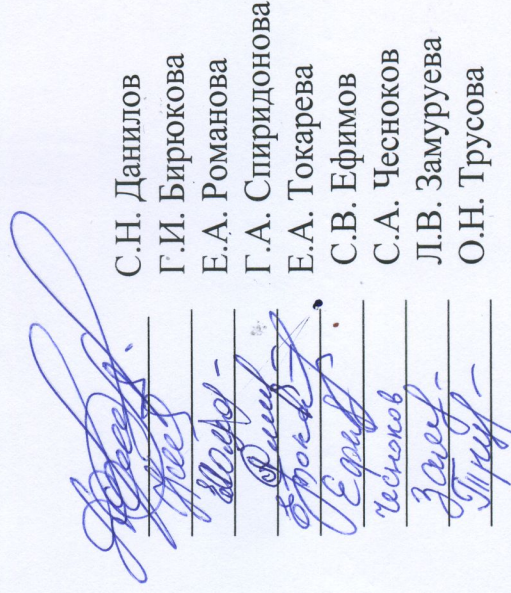 С.Н. Данилов
Г.И. Бирюкова
Е.А. Романова
Г.А. Спиридонова
Е.А. Токарева
С.В. Ефимов
чесноков С.А. Чесноков
Л.В. Замуруева
О.Н. Трусова